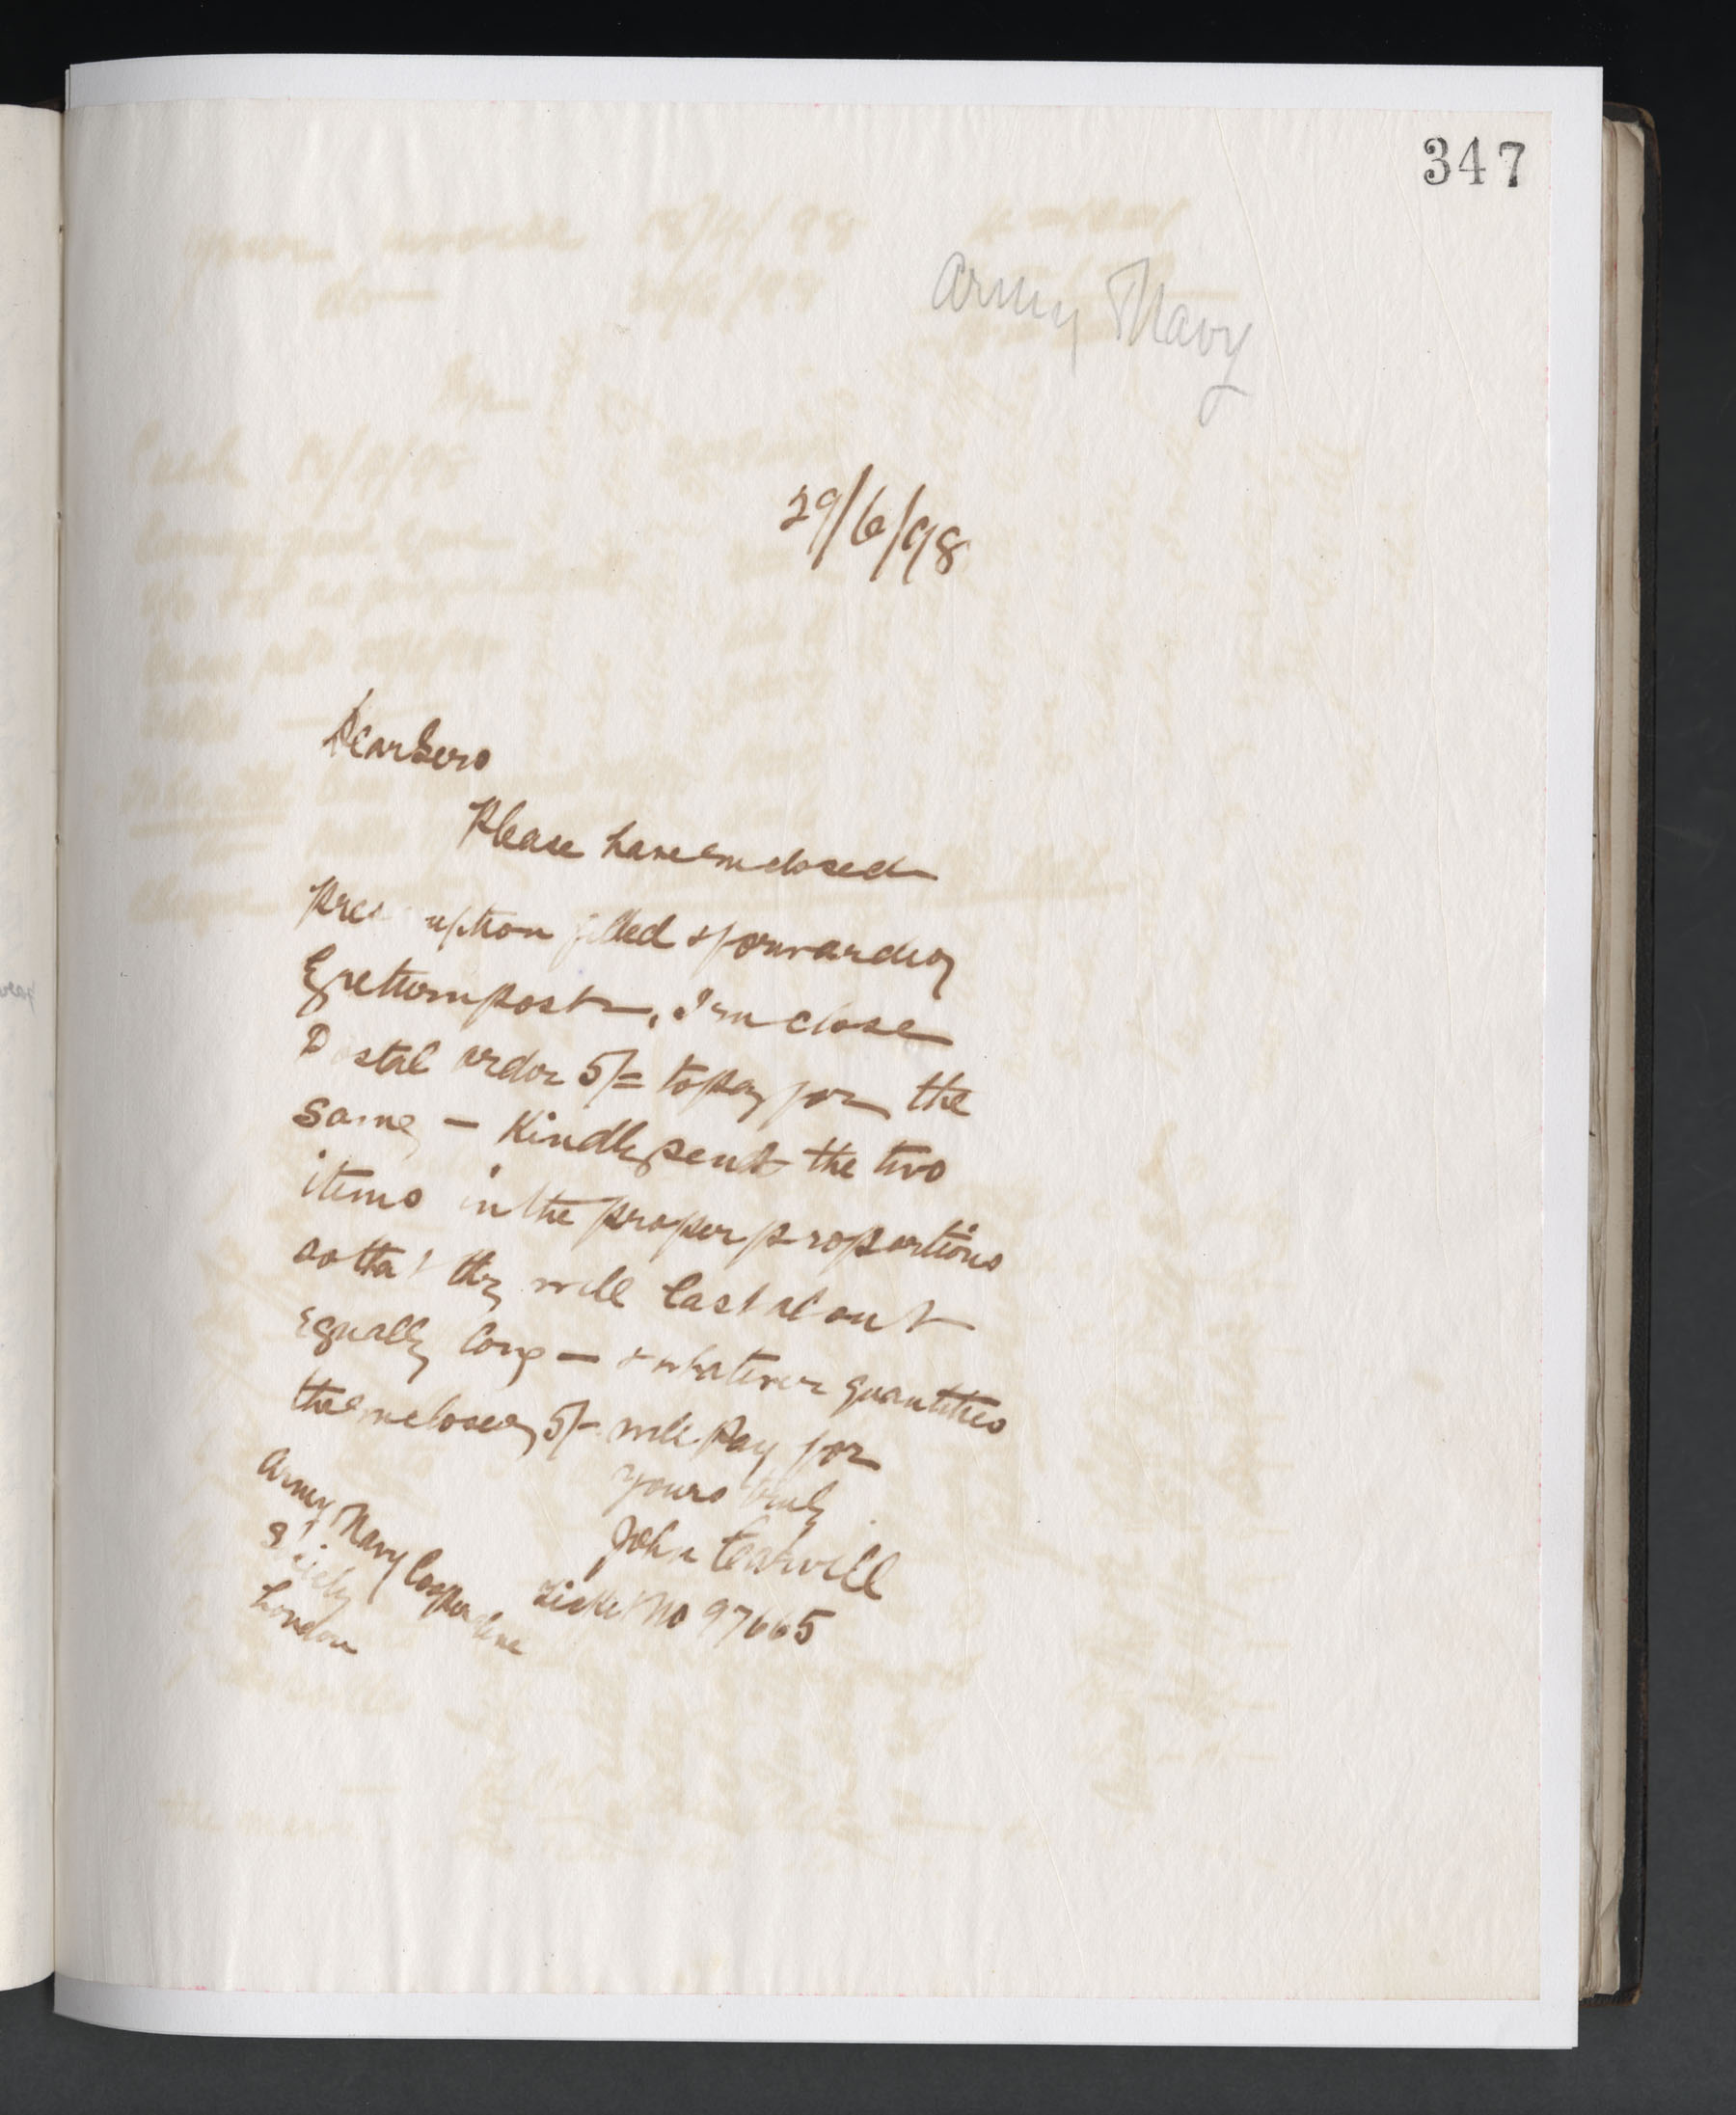 347
Army & Navy
29/6/98
Dear Sirs
Please have enclosed
prescription filled & forwarded
By return post. I enclose
Postal order 5/= to pay for the
same — Kindly send the two
items in the proper proportions
so that they will last about
Equally long — & whatever quantities
the enclosed 5/- will pay for
Yours truly
John
Ticket No 97665
Army Navy Cooperative
Society
London